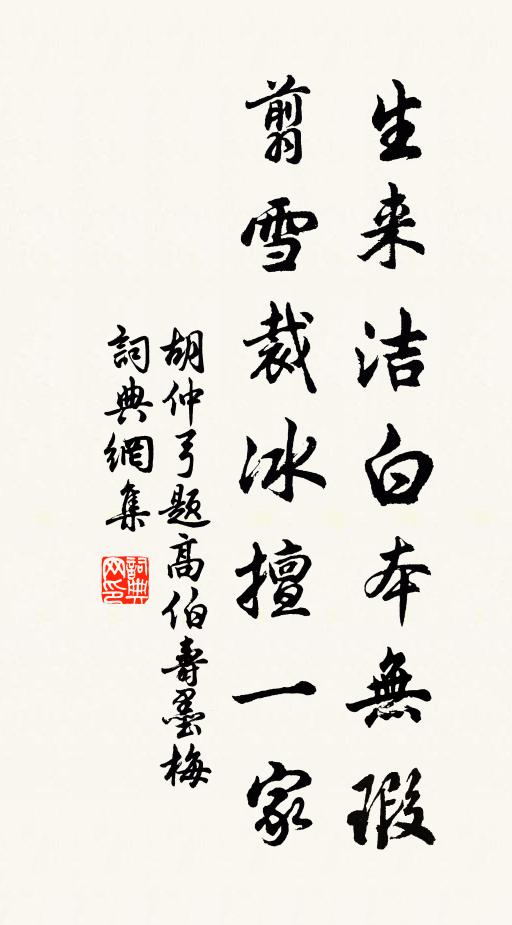 生来洁白本無瑕
翦雪裁冰擅一家
胡仲弓题高伯壽墨梅
詞典網集
詞典网印